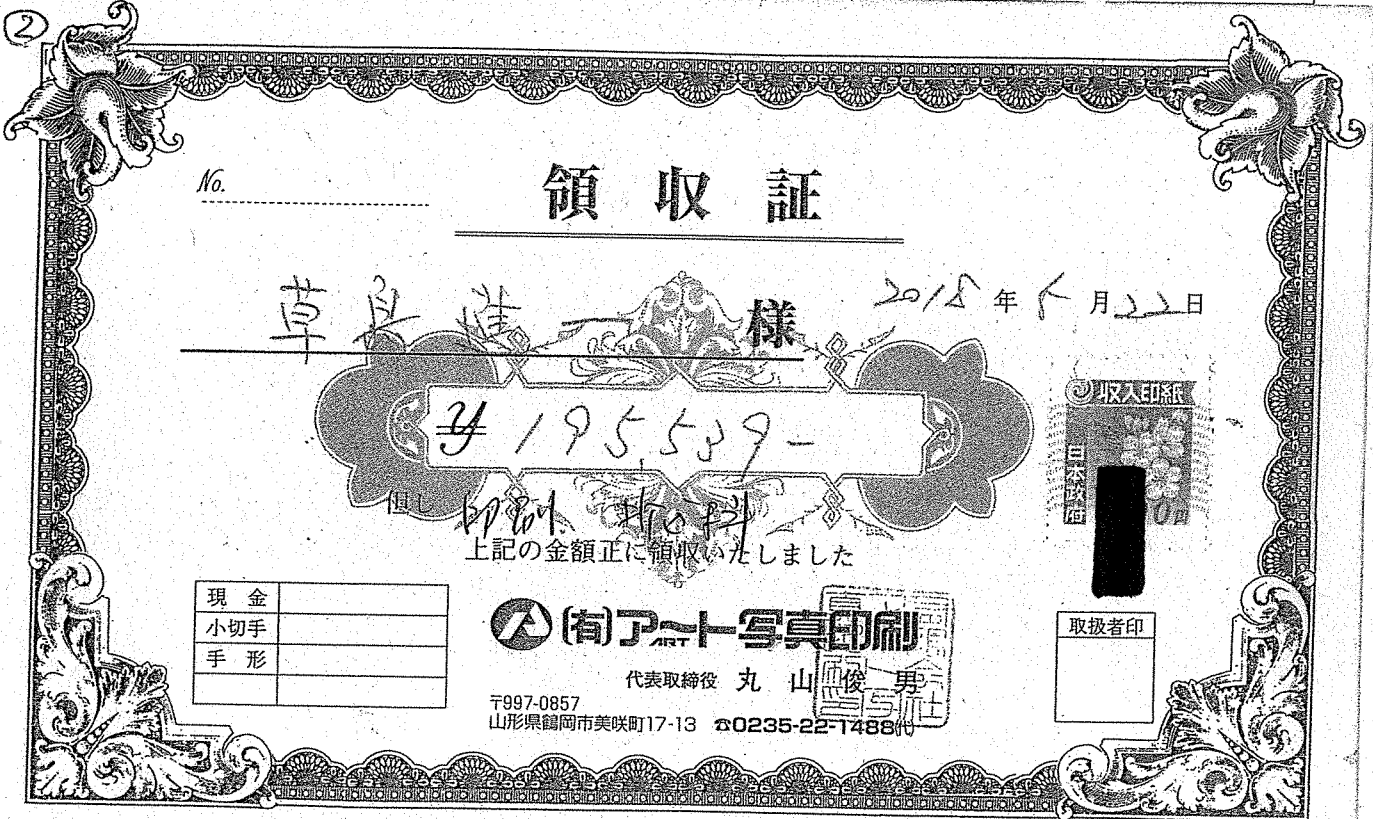 ②
No.
領収証
草島進一 様
2018年5月22日
¥195,539-
但し 印刷 折り
上記の金額正に領収いたしました
収入印紙
日本政府
0円
現金
小切手
手形
(有)アート写真印刷
ART
代表取締役 丸山俊男
〒997-0857
山形県鶴岡市美咲町17-13 ☎0235-22-1488㈹
取扱者印